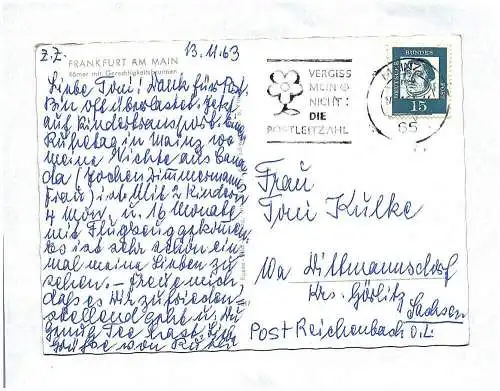 z.Z. 13.11.63
FRANKFURT AM MAIN
Römer mit Gerechtigkeitsbrunnen
Liebe Toni! Dank für Post.
Bin oft überlastet. Jetzt
auf Kindertransport. Eine
Ruhetag in Mainz wo
meine Nichte aus Cana-
da (Jochen Zimmermanns
Frau) ist. Mit 2 Kindern
4 Mon. u. 16 Monate
mit Flugzeug gekommen
Es ist sehr schön ein-
mal meine Lieben zu
sehen. – Freue mich,
daß es Dir zufrieden-
stellend geht u. Du
genug Tee hast. Liebe
Grüße von
VERGISS
MEIN
NICHT:
DIE
POSTLEITZAHL
MAINZ
65
DEUTSCHE BUNDESPOST
15
Frau
Toni Kulke
10a Dittmannsdorf
Krs. Görlitz
Sachsen
Post Reichenbach O.L.